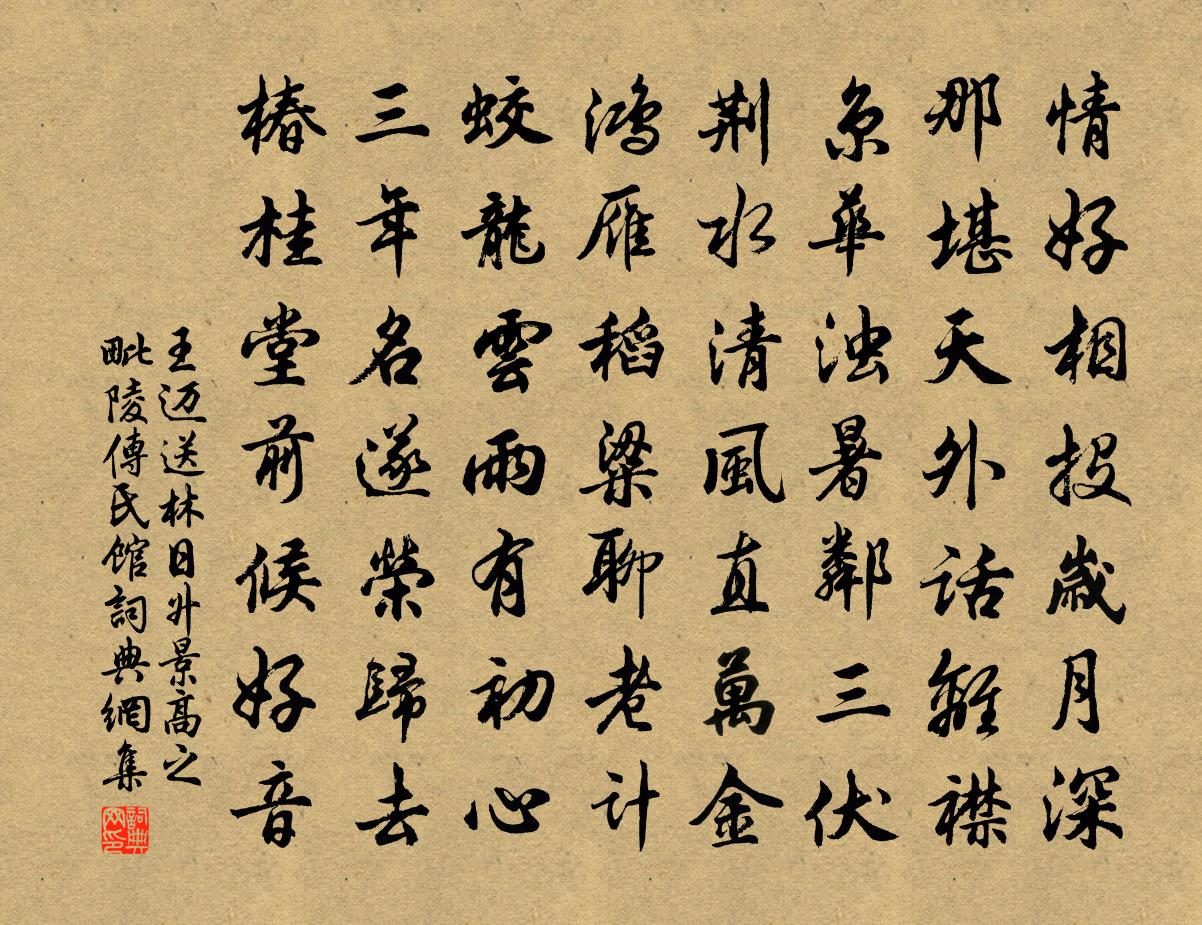 情好相投歲月深
那堪天外話離襟
京華浊暑鄰三伏
荆水清風直萬金
鸿雁稻粱聊老计
蛟龍雲雨有初心
三年名遂榮歸去
椿桂堂前候好音
王迈送林日升景高之
毗陵傅氏館詞典網集
詞典网印